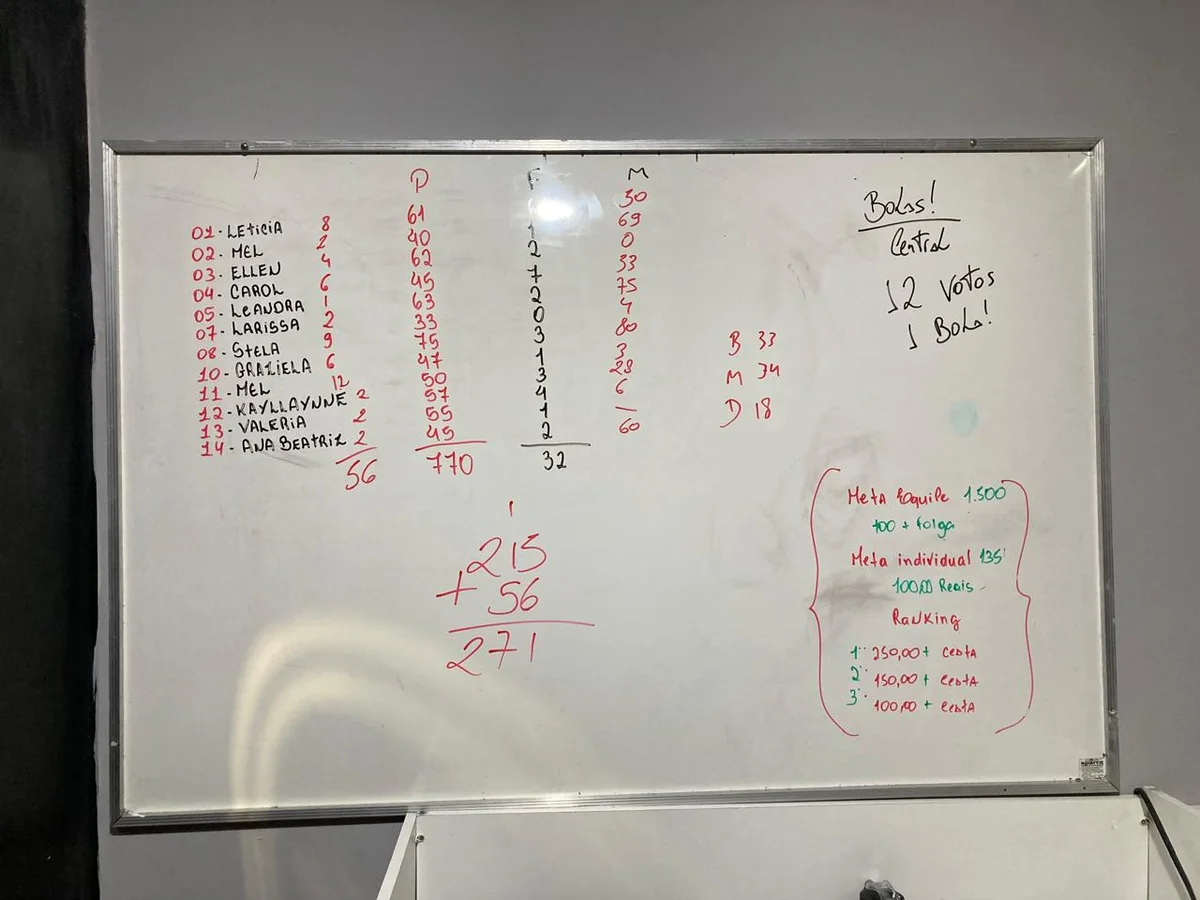 P F M
30
01 - LETICIA 8 61 1 69
02 - MEL 2 40 2 0
03 - ELLEN 4 62 7 33
04 - CAROL 6 45 2 75
05 - LEANDRA 1 63 0 4
07 - LARISSA 2 33 3 80
08 - STELA 9 75 1 3
10 - GRAZIELA 6 47 3 28
11 - MEL 12 50 4 6
12 - KAYLLAYNNE 2 57 1 —
13 - VALERIA 2 55 2 60
14 - ANA BEATRIZ 2 45
56 770 32
1
215
+ 56
271
B 33
M 34
D 18
Bolas!
Central
12 Votos
1 Bola!
Meta Equipe 1.500
100 + folga
Meta individual 135
100,00 Reais
Ranking
1º 250,00 + Cesta
2º 150,00 + Cesta
3º 100,00 + Cesta